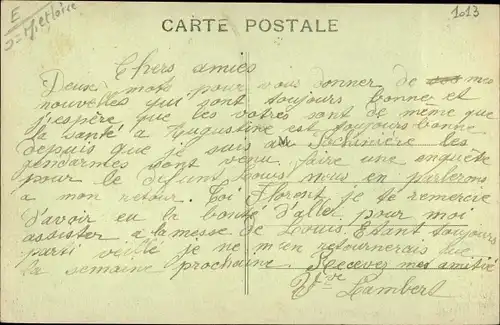 E
M et Loire
1013
CARTE POSTALE
Chers amies
Deux mots pour vous donner de mes
nouvelles qui sont toujours bonne et
j'espère que les votres sont de même que
la santé a Augustine est toujours bonne
depuis que je suis a les
gendarmes sont venu faire une enquête
pour le défunt nous nous en parlerons
a mon retour. Toi Florent je te remercie
d'avoir eu la bonté d'aller pour moi
assister a la messe de Louis. Etant toujours
parti veillé je ne m'en retournerais que
la semaine prochaine. Recevez mes amitié
Vve Lambert